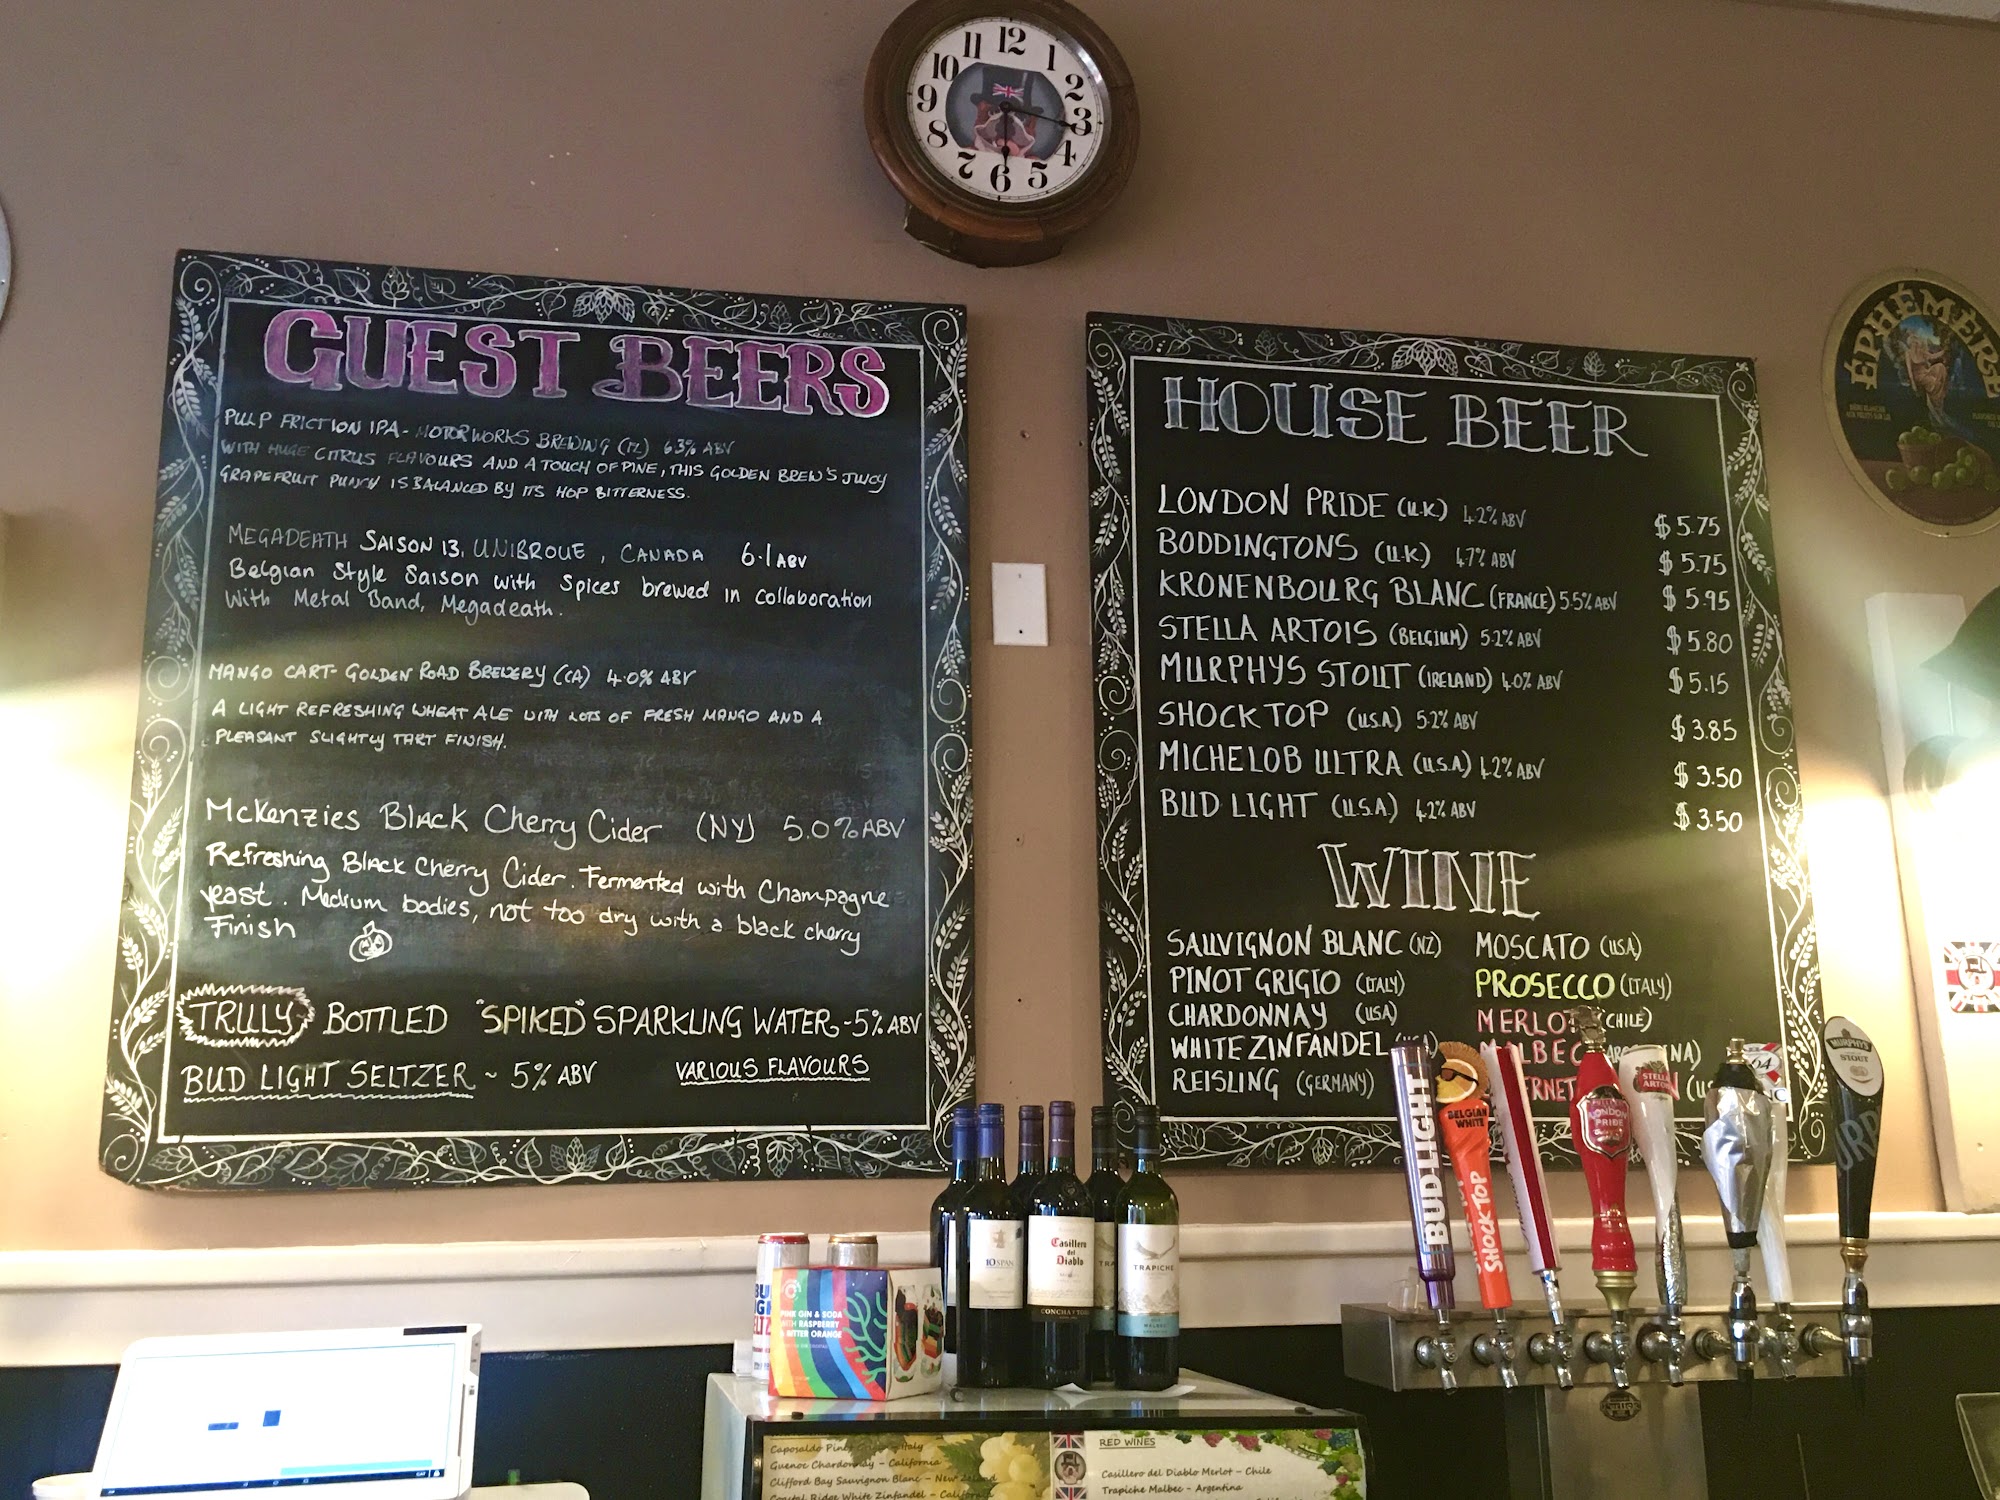 12
11 1
10 2
9 3
8 4
7 6 5
GUEST BEERS
PULP FRICTION IPA - MOTORWORKS BREWING (FL) 6.3% ABV
WITH HUGE CITRUS FLAVOURS AND A TOUCH OF PINE, THIS GOLDEN BREW'S JUICY
GRAPEFRUIT PUNCH IS BALANCED BY ITS HOP BITTERNESS.
MEGADEATH SAISON 13, UNIBROUE, CANADA 6.1 ABV
Belgian Style Saison with spices brewed in collaboration
With Metal Band, Megadeath.
MANGO CART - GOLDEN ROAD BREWERY (CA) 4.0% ABV
A LIGHT REFRESHING WHEAT ALE WITH LOTS OF FRESH MANGO AND A
PLEASANT SLIGHTLY TART FINISH.
McKenzies Black Cherry Cider (NY) 5.0% ABV
Refreshing Black Cherry Cider. Fermented with Champagne
yeast. Medium bodies, not too dry with a black cherry
Finish
TRULY BOTTLED "SPIKED" SPARKLING WATER - 5% ABV
BUD LIGHT SELTZER ~ 5% ABV VARIOUS FLAVOURS
HOUSE BEER
LONDON PRIDE (U.K.) 4.2% ABV $5.75
BODDINGTONS (U.K.) 4.7% ABV $5.75
KRONENBOURG BLANC (FRANCE) 5.5% ABV $5.95
STELLA ARTOIS (BELGIUM) 5.2% ABV $5.80
MURPHYS STOUT (IRELAND) 4.0% ABV $5.15
SHOCK TOP (U.S.A.) 5.2% ABV $3.85
MICHELOB ULTRA (U.S.A.) 4.2% ABV $3.50
BUD LIGHT (U.S.A.) 4.2% ABV $3.50
WINE
SAUVIGNON BLANC (NZ) MOSCATO (USA)
PINOT GRIGIO (ITALY) PROSECCO (ITALY)
CHARDONNAY (USA) MERLOT (CHILE)
WHITE ZINFANDEL MALBEC
REISLING (GERMANY)
ÉPHÉMÈRE
BUD LIGHT
BELGIAN
WHITE
SHOCK TOP
LONDON
PRIDE
STELLA
ARTOIS
MURPHY'S
STOUT
10 SPAN
Casillero
del
Diablo
CONCHA Y TORO
TRAPICHE
MALBEC
PINK GIN & SODA
WITH RASPBERRY
& BITTER ORANGE
Caposaldo Pinot Grigio - Italy
Guenoc Chardonnay - California
Clifford Bay Sauvignon Blanc - New Zealand
Coastal Ridge White Zinfandel - California
RED WINES
Casillero del Diablo Merlot - Chile
Trapiche Malbec - Argentina